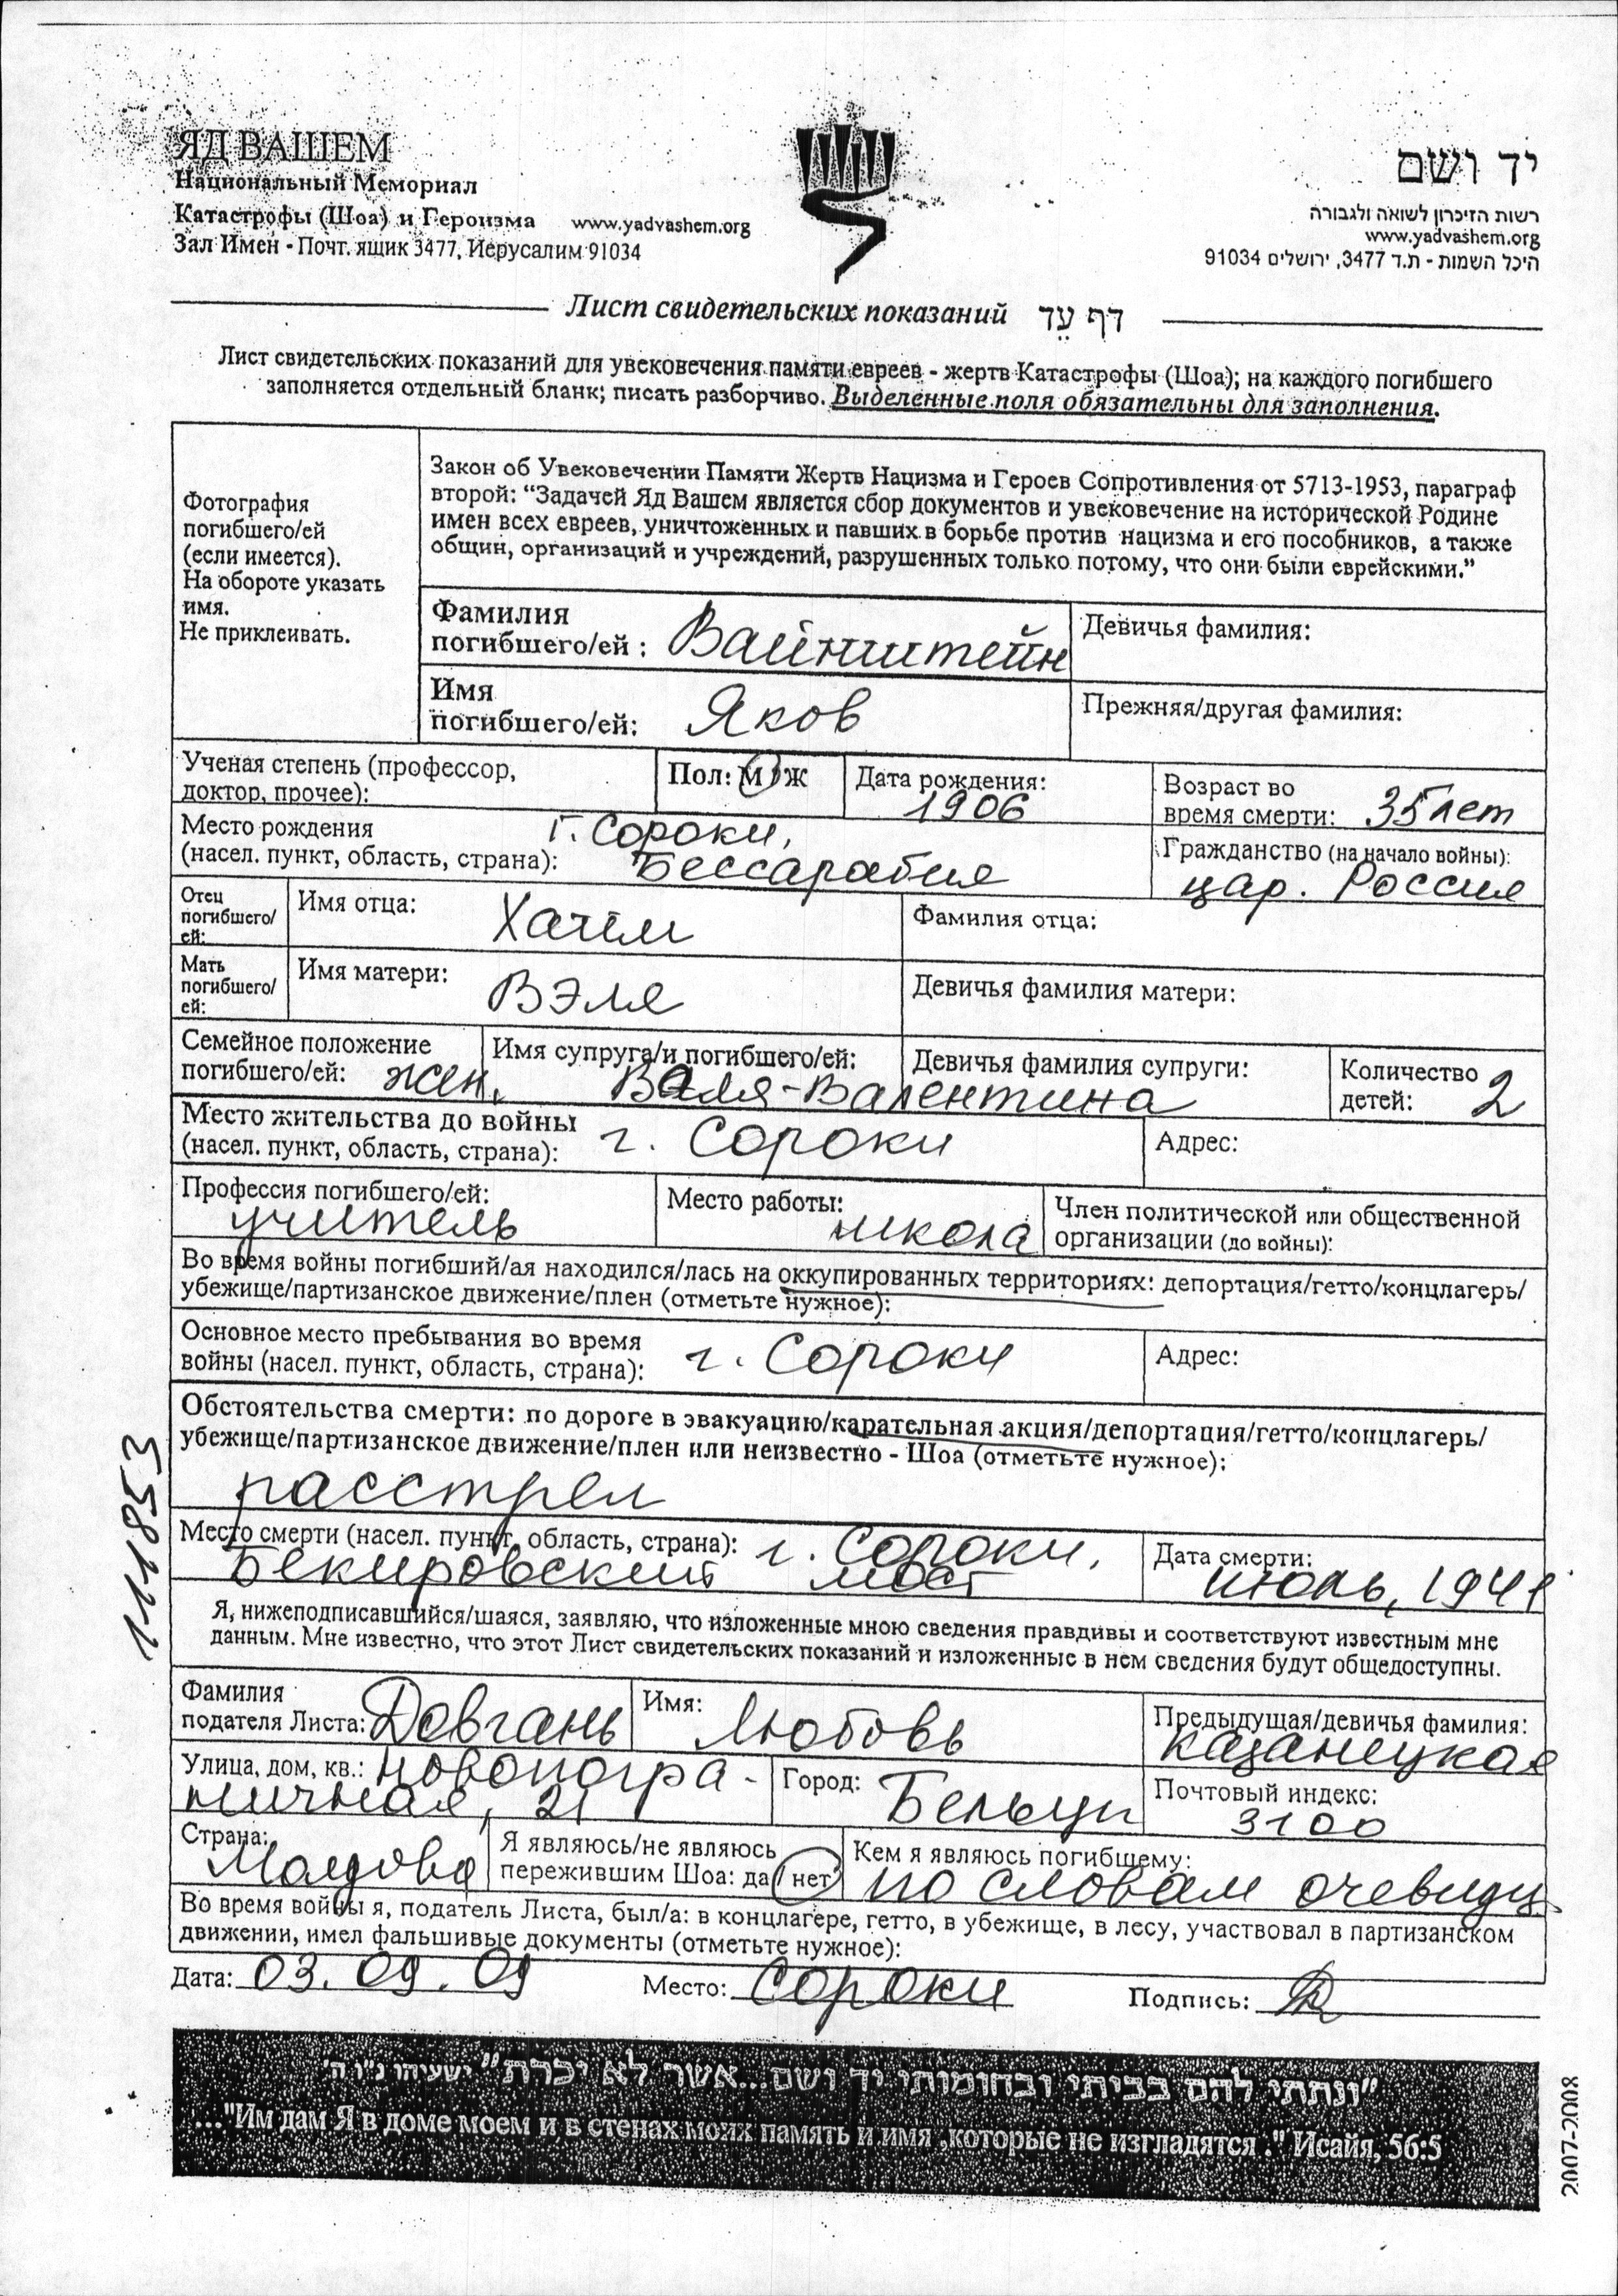 ЯД ВАШЕМ
Национальный Мемориал
Катастрофы (Шоа) и Героизма www.yadvashem.org
Зал Имен - Почт. ящик 3477, Иерусалим 91034
יד ושם
רשות הזיכרון לשואה ולגבורה
www.yadvashem.org
היכל השמות - ת.ד 3477, ירושלים 91034
Лист свидетельских показаний דף עֵד
Лист свидетельских показаний для увековечения памяти евреев - жертв Катастрофы (Шоа); на каждого погибшего
заполняется отдельный бланк; писать разборчиво. Выделенные поля обязательны для заполнения.
Фотография
погибшего/ей
(если имеется).
На обороте указать
имя.
Не приклеивать.
Закон об Увековечении Памяти Жертв Нацизма и Героев Сопротивления от 5713-1953, параграф
второй: “Задачей Яд Вашем является сбор документов и увековечение на исторической Родине
имен всех евреев, уничтоженных и павших в борьбе против нацизма и его пособников, а также
общин, организаций и учреждений, разрушенных только потому, что они были еврейскими.”
Фамилия
погибшего/ей : Вайнштейн
Девичья фамилия:
Имя
погибшего/ей: Яков
Прежняя/другая фамилия:
Ученая степень (профессор,
доктор, прочее):
Пол: М / Ж
Дата рождения:
1906
Возраст во
время смерти: 35 лет
Место рождения г. Сороки,
(насел. пункт, область, страна): Бессарабия
Гражданство (на начало войны):
цар. Россия
Отец
погибшего/
ей:
Имя отца: Хаим
Фамилия отца:
Мать
погибшего/
ей:
Имя матери: Вэля
Девичья фамилия матери:
Семейное положение
погибшего/ей: жен.
Имя супруга/и погибшего/ей:
Валя-Валентина
Девичья фамилия супруги:
Количество
детей: 2
Место жительства до войны
(насел. пункт, область, страна): г. Сороки
Адрес:
Профессия погибшего/ей:
учитель
Место работы:
школа
Член политической или общественной
организации (до войны):
Во время войны погибший/ая находился/лась на оккупированных территориях: депортация/гетто/концлагерь/
убежище/партизанское движение/плен (отметьте нужное):
Основное место пребывания во время
войны (насел. пункт, область, страна): г. Сороки
Адрес:
Обстоятельства смерти: по дороге в эвакуацию/карательная акция/депортация/гетто/концлагерь/
убежище/партизанское движение/плен или неизвестно - Шоа (отметьте нужное):
расстрел
Место смерти (насел. пункт, область, страна): г. Сороки,
Бекировский мост
Дата смерти:
июль, 1941
Я, нижеподписавшийся/шаяся, заявляю, что изложенные мною сведения правдивы и соответствуют известным мне
данным. Мне известно, что этот Лист свидетельских показаний и изложенные в нем сведения будут общедоступны.
Фамилия
подателя Листа: Довгань
Имя: Любовь
Предыдущая/девичья фамилия:
Казанецкая
Улица, дом, кв.: Новопогра-
ничная, 21
Город: Бельцы
Почтовый индекс:
3100
Страна:
Молдова
Я являюсь/не являюсь
пережившим Шоа: да / нет
Кем я являюсь погибшему:
по словам очевидц
Во время войны я, податель Листа, был/а: в концлагере, гетто, в убежище, в лесу, участвовал в партизанском
движении, имел фальшивые документы (отметьте нужное):
Дата: 03.09.09 Место: Сороки Подпись:
"ונתתי להם בביתי ובחומותי יד ושם...אשר לא יכרת" ישעיהו נ"ו ה'
..."Им дам Я в доме моем и в стенах моих память и имя ,которые не изгладятся ." Исайя, 56:5
1118553
2007-2008